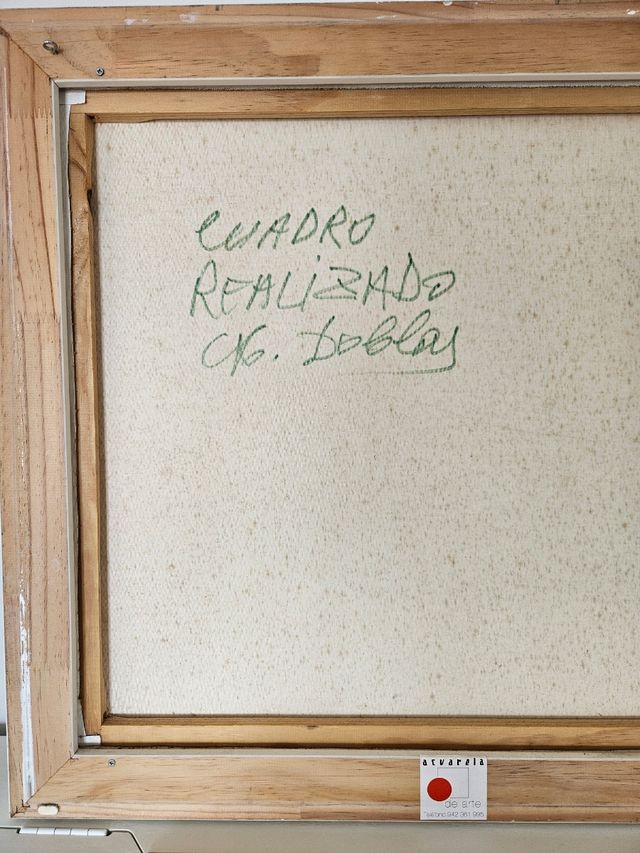 CUADRO
REALIZADO
Doblas
acuarela
de arte
Teléfono 942 361 995